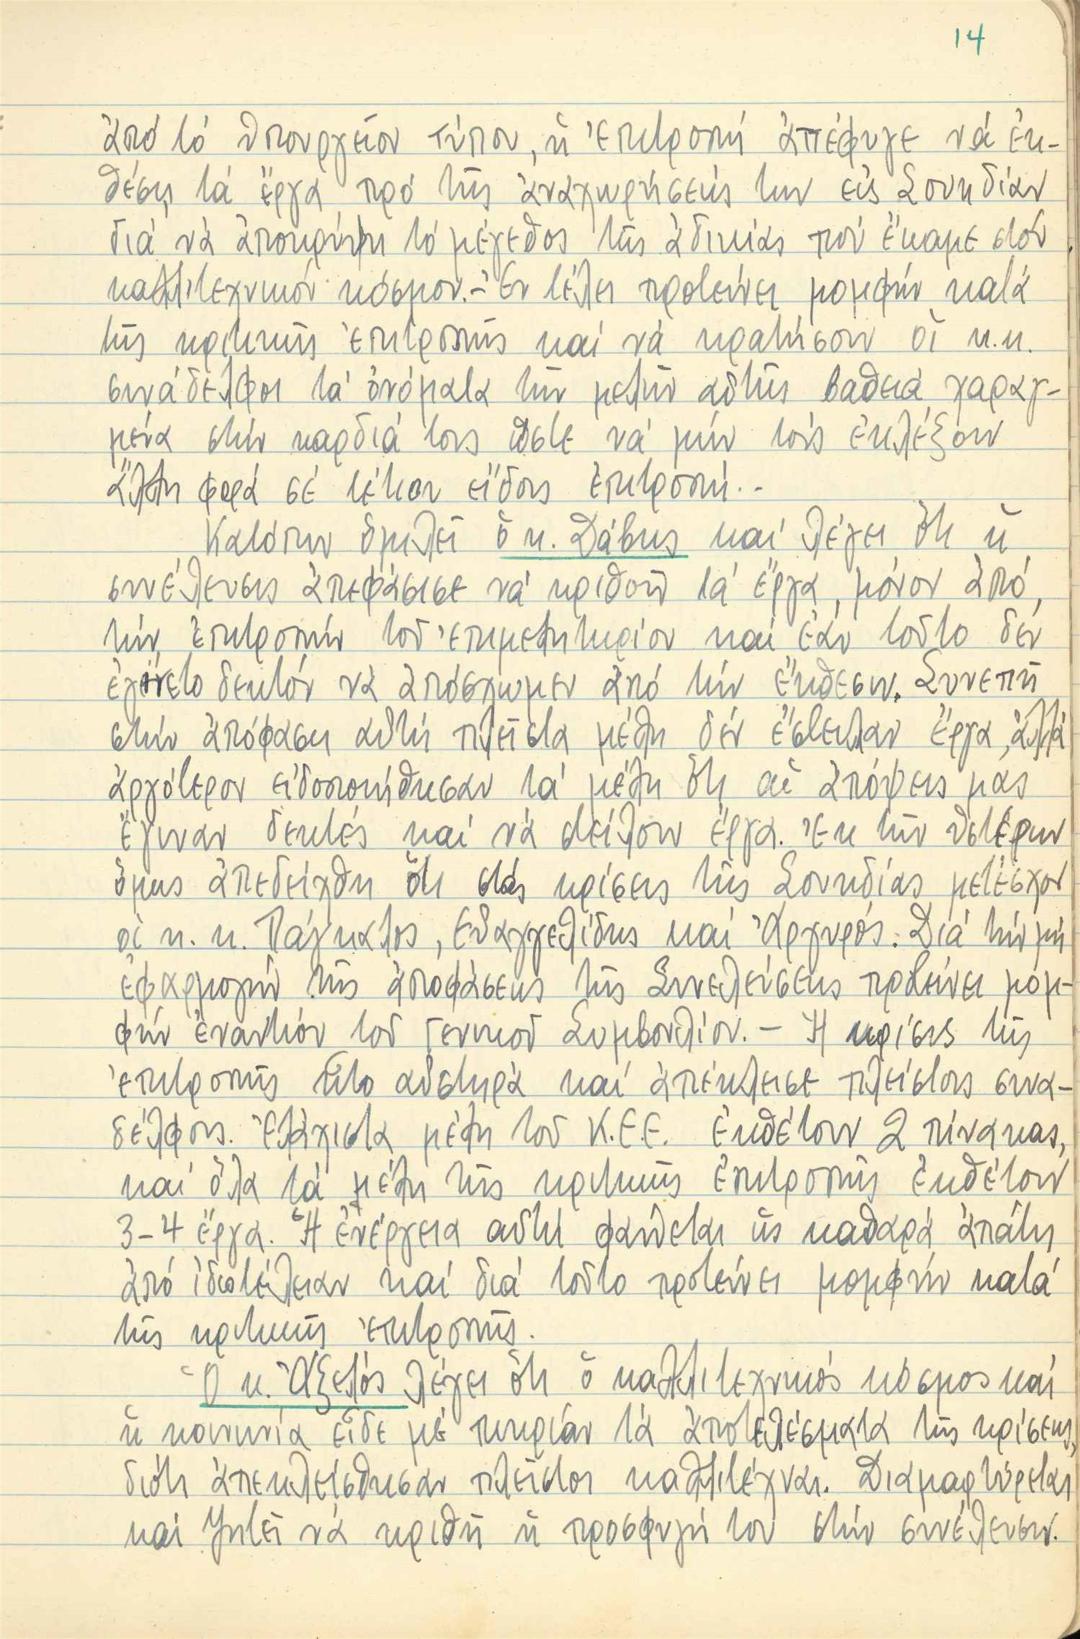 14
ἀπό τό Ὑπουργεῖον Τύπου, ἡ Ἐπιτροπή ἀπέφυγε νά ἐκ-
θέσῃ τά ἔργα πρό τῆς ἀναχωρήσεώς των εἰς Σουηδίαν
διά νά ἀποκρύψῃ τό μέγεθος τῆς ἀδικίας πού ἔκαμε στόν
καλλιτεχνικόν κόσμον.- Ἐν τέλει προτείνει μομφήν κατά
τῆς κριτικῆς Ἐπιτροπῆς καί νά κρατήσουν οἱ κ.κ.
συνάδελφοι τά ὀνόματα τῶν μελῶν αὐτῆς βαθειά χαραγ-
μένα στήν καρδιά τους ὥστε νά μήν τούς ἐκλέξουν
ἄλλη φορά σέ τέτοιου εἴδους ἐπιτροπή.-
Κατόπιν ὁμιλεῖ ὁ κ. Δάβης καί λέγει ὅτι ἡ
συνέλευσις ἀπεφάσισε νά κριθοῦν τά ἔργα, μόνον ἀπό
τήν ἐπιτροπήν τοῦ Ἐπιμελητηρίου καί ἐάν τοῦτο δέν
ἐγένετο δεκτόν νά ἀπόσχωμεν ἀπό τήν ἔκθεσιν. Συνεπῆ
στήν ἀπόφαση αὐτή πλεῖστα μέλη δέν ἔστειλαν ἔργα, ἀλλά
ἀργότερον εἰδοποιήθησαν τά μέλη ὅτι αἱ ἀπόψεις μας
ἔγιναν δεκτές καί νά στείλουν ἔργα. Ἐκ τῶν ὑστέρων
ὅμως ἀπεδείχθη ὅτι στάς κρίσεις τῆς Σουηδίας μετέσχον
οἱ κ. κ. Πάγκαλος, Εὐαγγελίδης καί Ἀργυρός. Διά τήν μή
ἐφαρμογήν τῆς ἀποφάσεως τῆς Συνελεύσεως προτείνει μομ-
φήν ἐναντίον τοῦ Γενικοῦ Συμβουλίου. - Ἡ κρίσις τῆς
ἐπιτροπῆς ἦτο αὐστηρά καί ἀπέκλεισε πλείστους συνα-
δέλφους. Ἐλάχιστα μέλη τοῦ Κ.Ε.Ε. ἐκθέτουν 2 πίνακας,
καί ὅλα τά μέλη τῆς κριτικῆς ἐπιτροπῆς ἐκθέτουν
3-4 ἔργα. Ἡ ἐνέργεια αὐτή φαίνεται ὡς καθαρά ἀπάτη
ἀπό ἰδιοτέλειαν καί διά τοῦτο προτείνει μομφήν κατά
τῆς κριτικῆς ἐπιτροπῆς.
Ὁ κ. Ἀξελός λέγει ὅτι ὁ καλλιτεχνικός κόσμος καί
ἡ κοινωνία εἶδε μέ πικρίαν τά ἀποτελέσματα τῆς κρίσεως,
διότι ἀπεκλείσθησαν πλεῖστοι καλλιτέχναι. Διαμαρτύρεται
καί ζητεῖ νά κριθῇ ἡ προσφυγή του στήν συνέλευσιν.